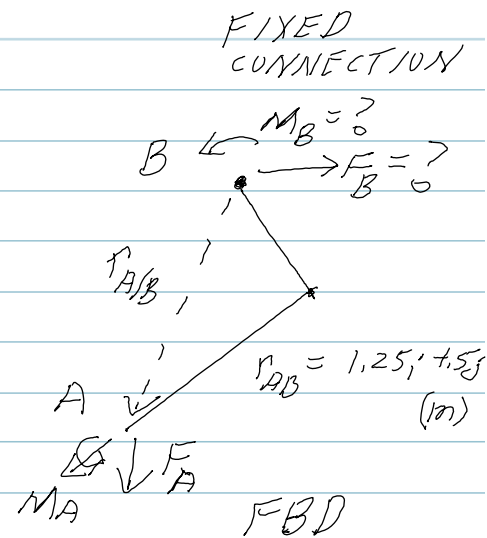 FIXED
CONNECTION
M_B = ?
B
F_B = ?
r_A/B
r_AB = 1.25i + .5j
(m)
A
F_A
M_A
FBD